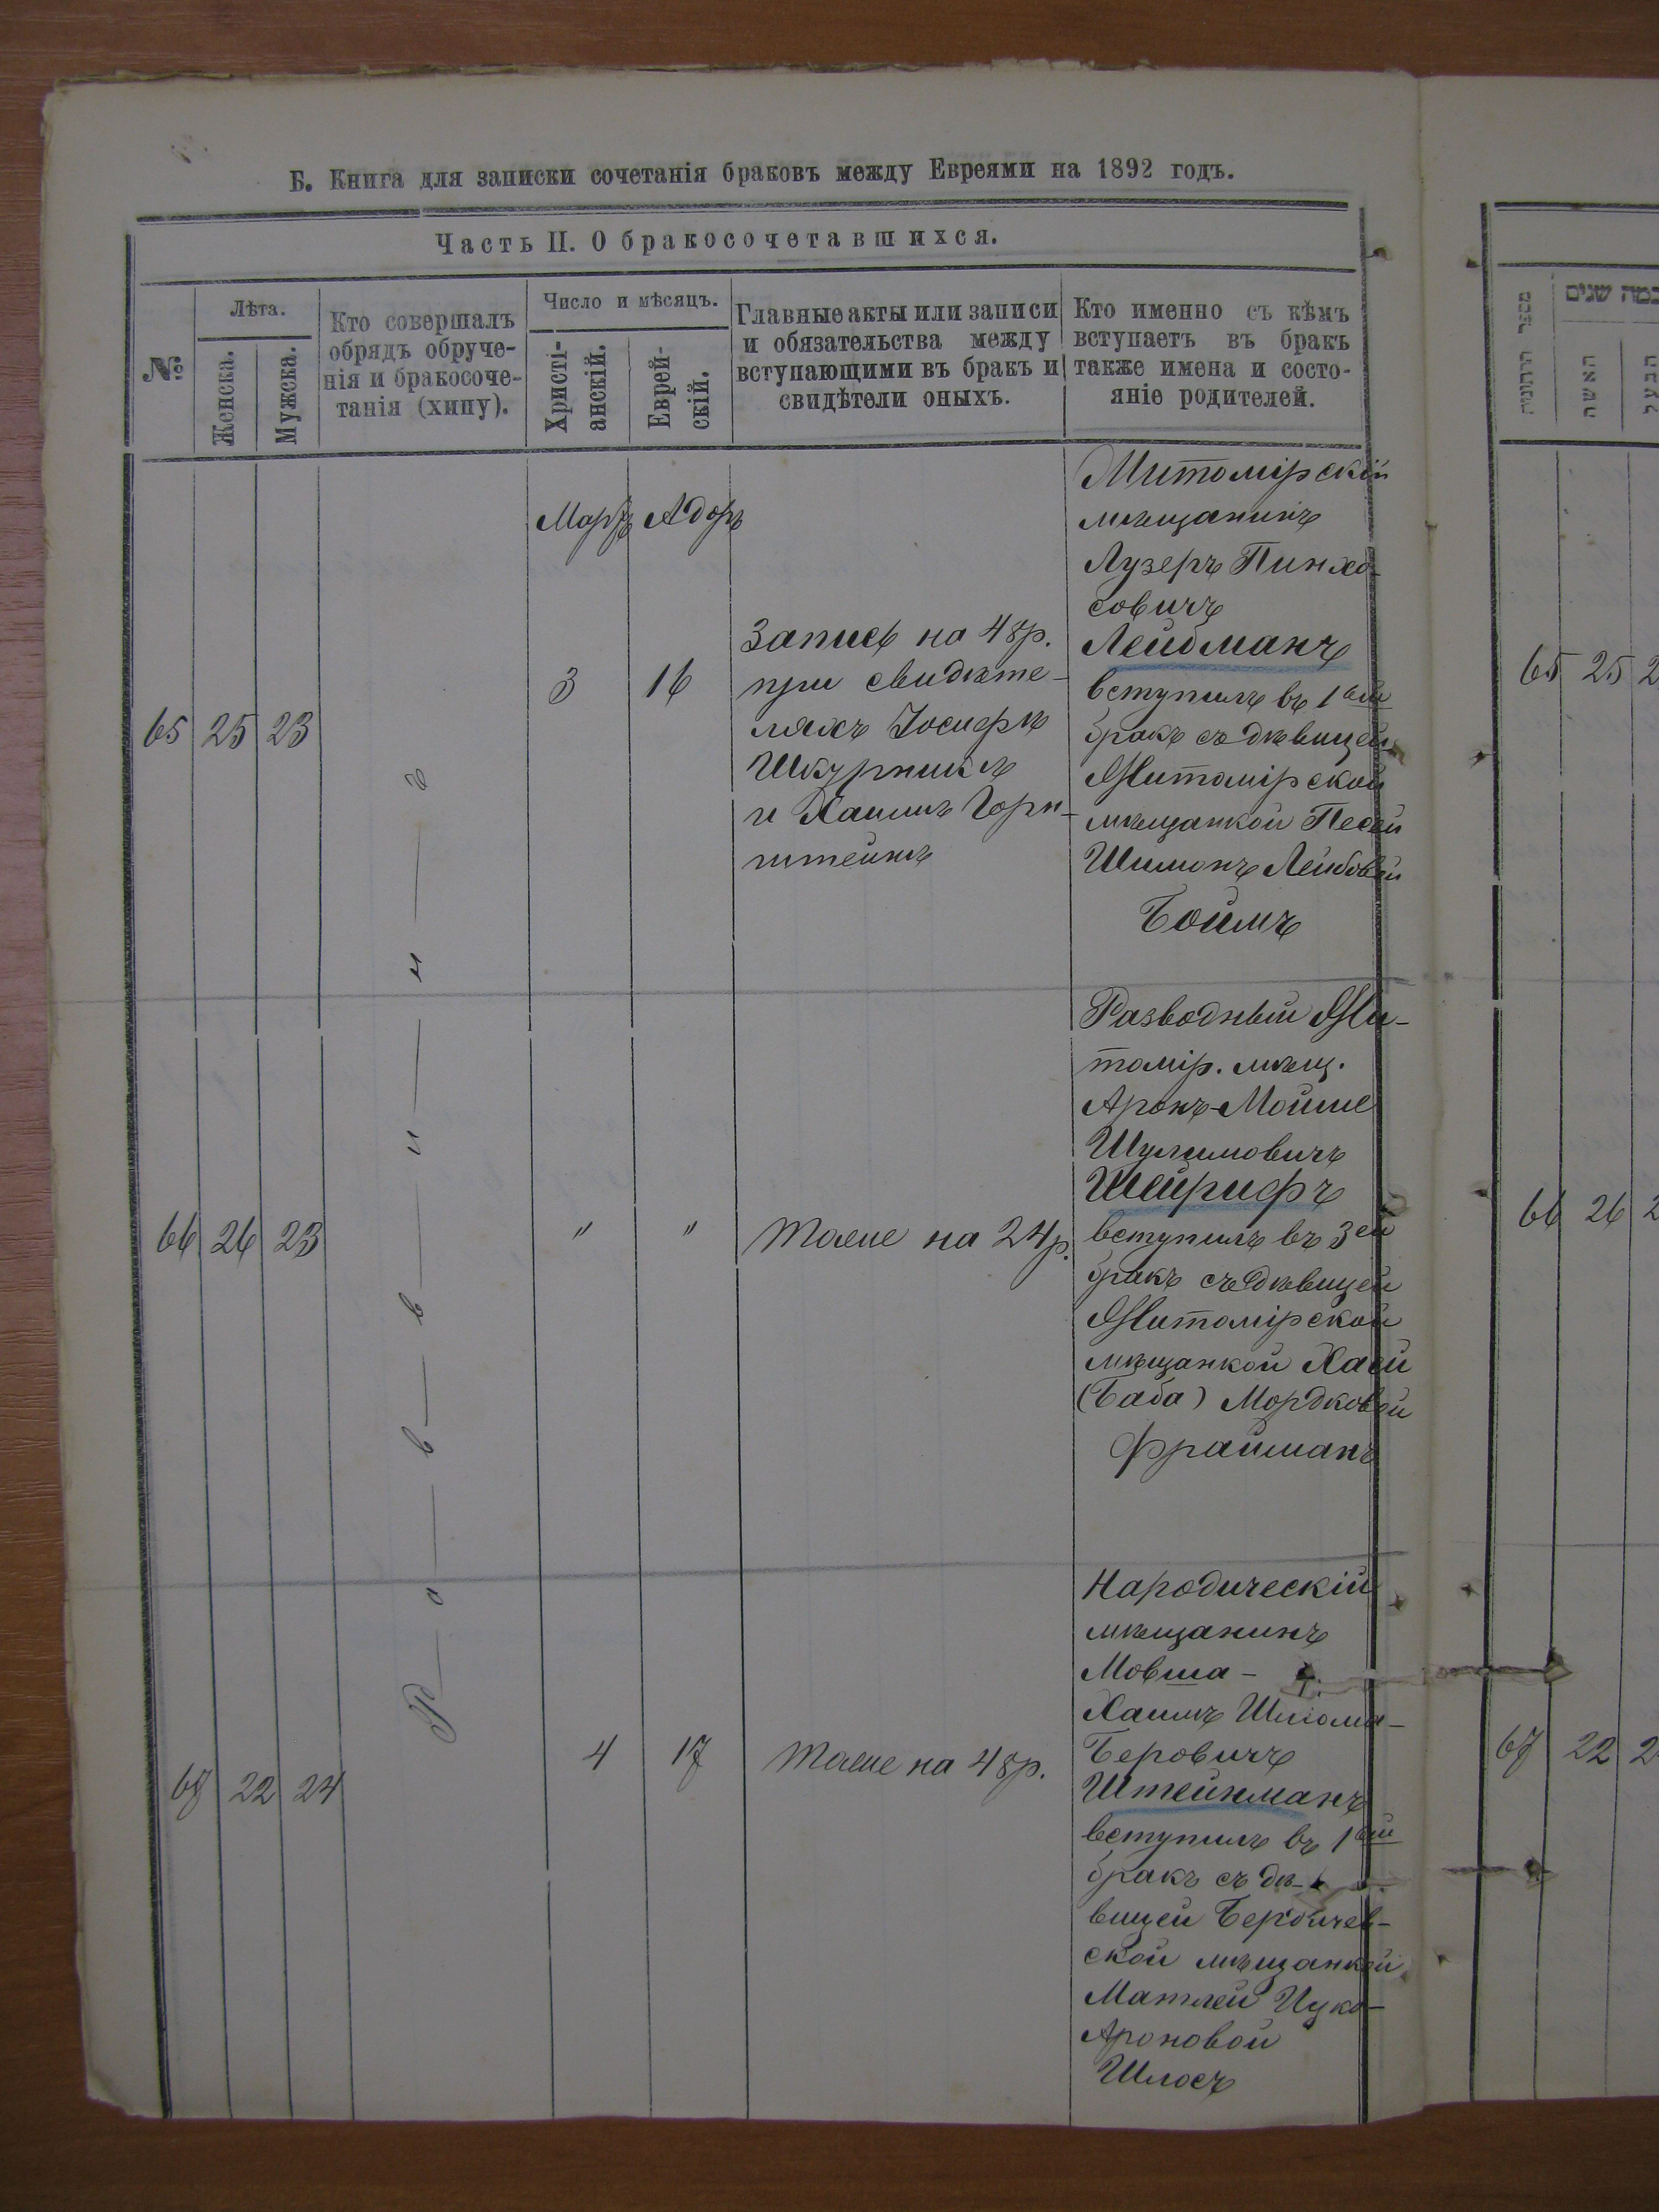 Б. Книга для записки сочетанія браковъ между Евреями на 1892 годъ.
Часть II. О бракосочетавшихся.
№
Лѣта.
Женска.
Мужска.
Кто совершалъ
обрядъ обруче-
нія и бракосоче-
танія (хипу).
Число и мѣсяцъ.
Христі-
анскій.
Еврей-
скій.
Главные акты или записи
и обязательства между
вступающими въ бракъ и
свидѣтели оныхъ.
Кто именно съ кѣмъ
вступаетъ въ бракъ
также имена и состо-
яніе родителей.
Мартъ Адоръ
65 25 23
3 16
Запись на 48р.
при свидѣте-
ляхъ Іосифѣ
Шкурникѣ
и Хаимѣ Горн-
штейнѣ
Житомірскій
мѣщанинъ
Лузеръ Пинхо-
совичъ
Лейбманъ
вступилъ въ 1ый
бракъ съ дѣвицей
Житомірской
мѣщанкой Песей
Шимонъ Лейбовой
Боймъ
66 26 23
" "
Тоже на 24р.
Разводный Жи-
томір. мѣщ.
Аронъ-Мойше
Шулимовичъ
Шейрифъ
вступилъ въ 3ей
бракъ съ дѣвицей
Житомірской
мѣщанкой Хаей
(Баба) Мордковой
Фрайманъ
67 22 24
4 17
Тоже на 48р.
Народическій
мѣщанинъ
Мовша-
Хаимъ Шлiома-
Беровичъ
Штейнманъ
вступилъ въ 1ый
бракъ съ дѣ-
вицей Бердичев-
ской мѣщанкой
Матлей Ицко-
Ароновой
Шлосъ
Р-а-в-в-и-н-ъ
כמה שנים
האשה
הבעל
65 25 2
66 26 2
67 22 2